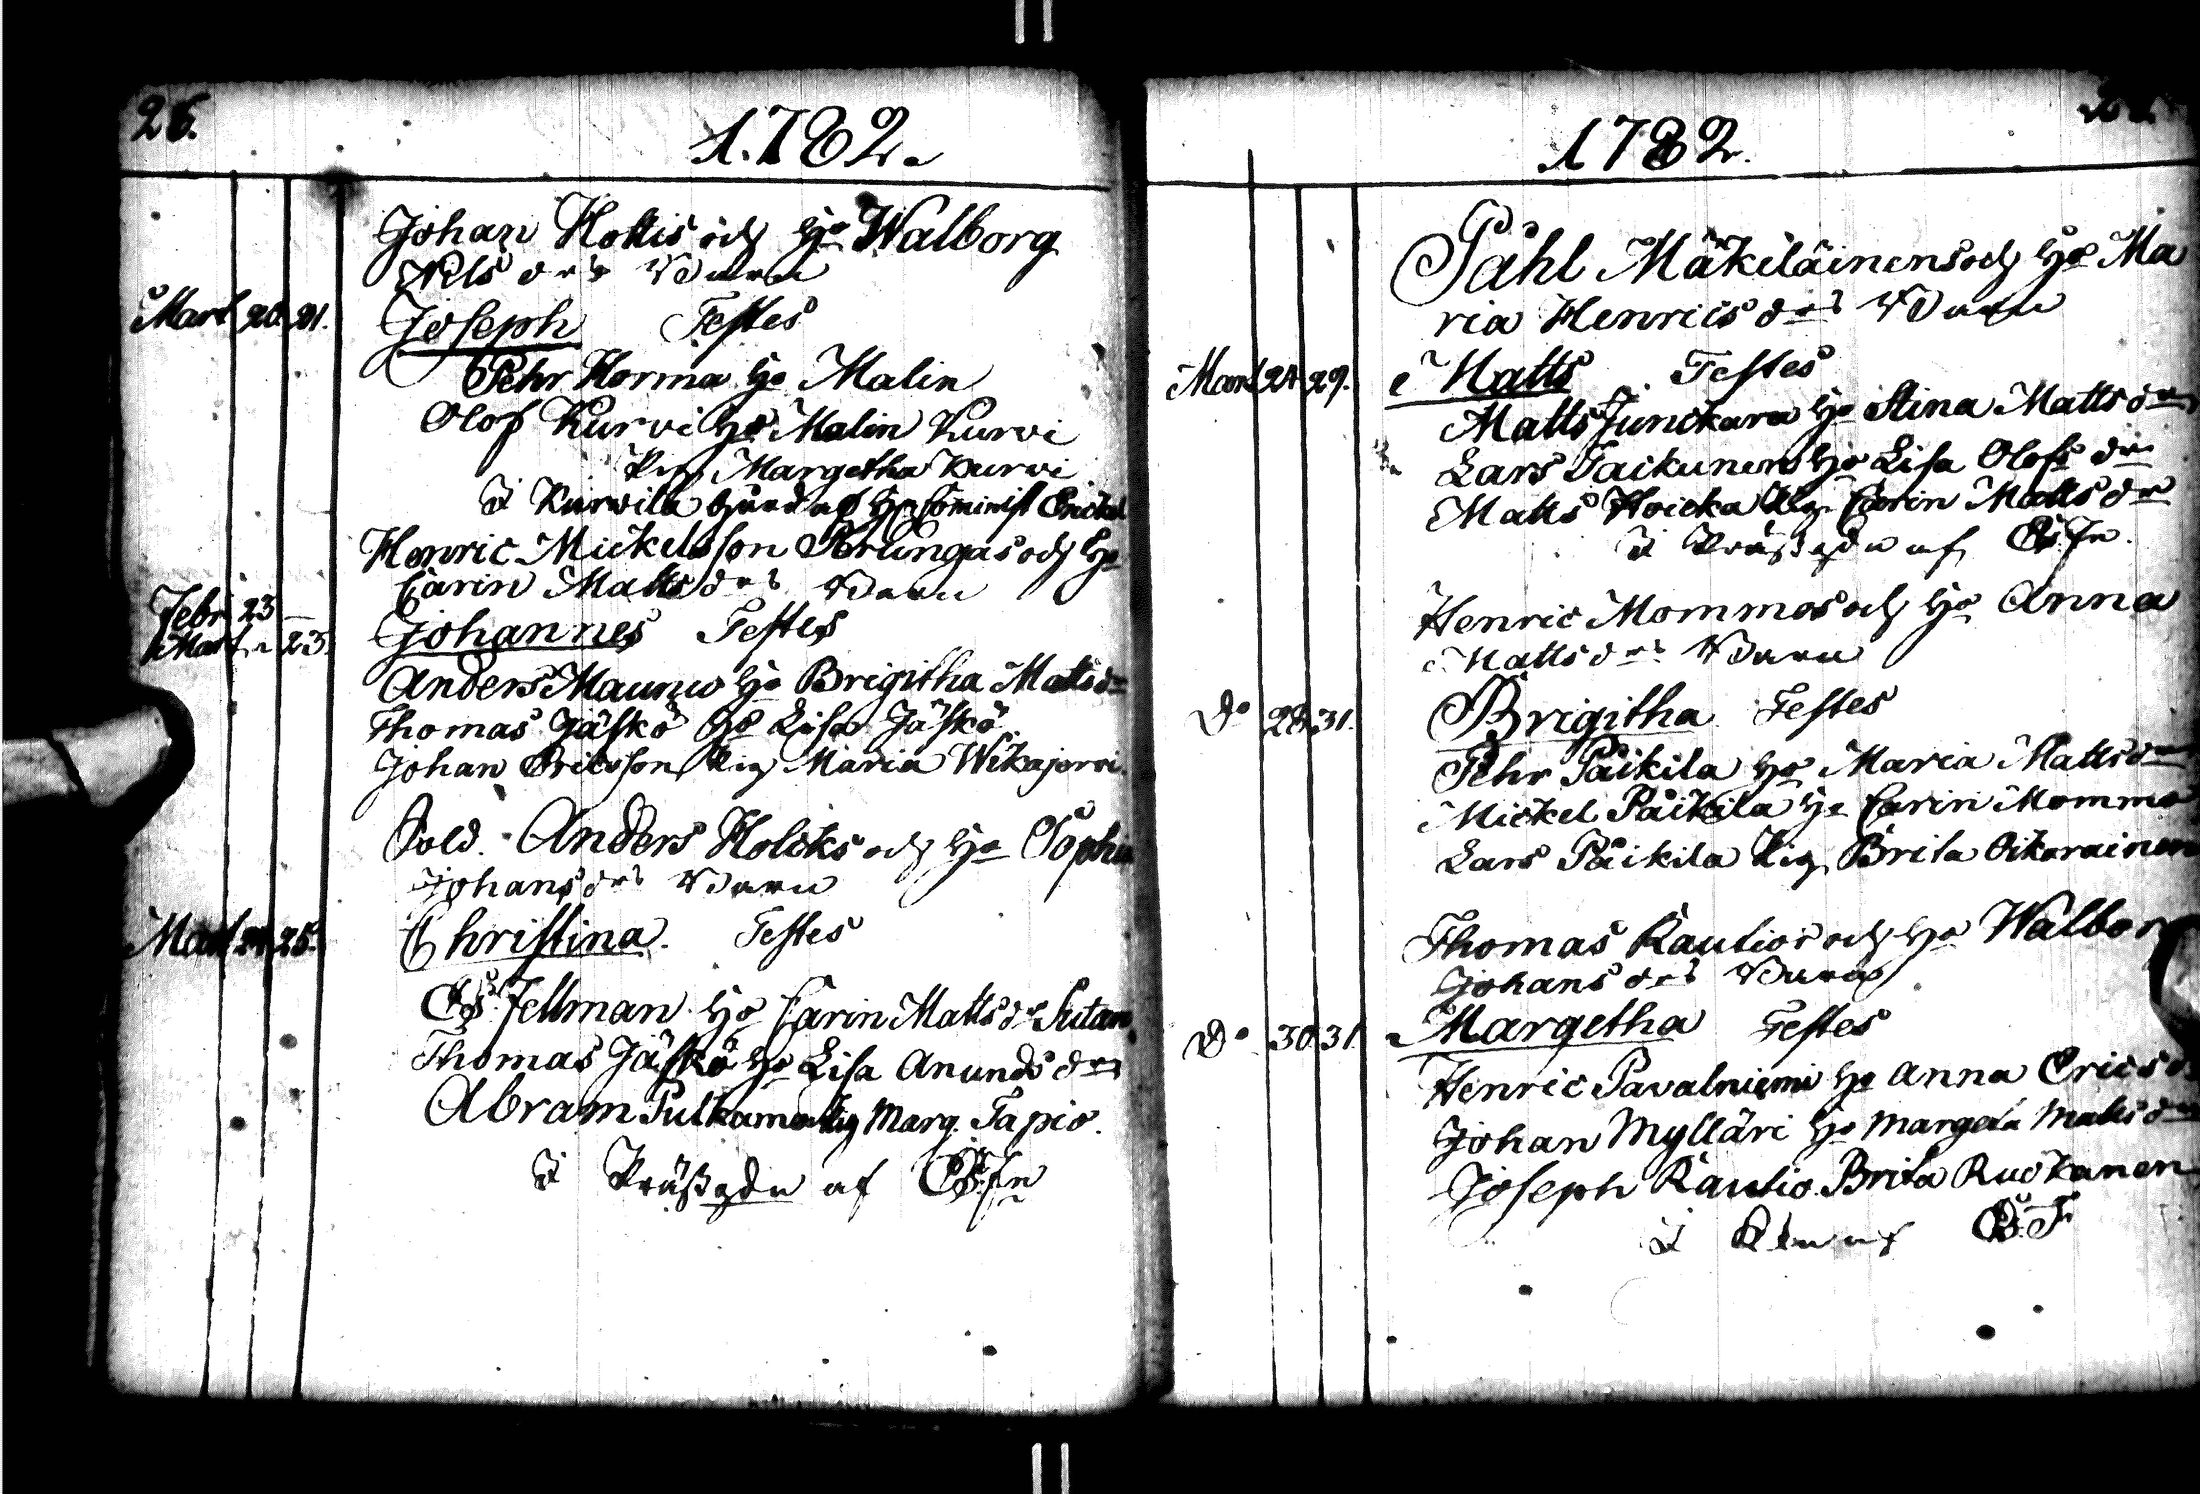 26.
1.782.
Johan Hottis och Ho Walborg
Nils drs Barn
Mart 20. 21. Joseph Testes
Pehr Horma Ho Malin
Olof Kurvi Ho Malin Kurvi
Pig. Margetha Kurvi
I Kurvila Comminist
Henric Mickelsson och Ho
Carin Matts drs Barn
Febr 23 –
Mart. 23. Johannes Testes
Anders Maunu Ho Brigitha Mattsdr
Thomas Jäskö Ho Lisa Jäskö
Johan Ericsson Pig Maria Wikajervi.
Sold. Anders Holcks och Ho Sophia
Johans drs Barn
Mart 24 25. Christina. Testes
Es. Fellman Ho Carin Mattsdr
Thomas Jäskö Ho Lisa Anunds dr
Abram Pulkamo Pig Marg. Tapio.
I af Es. Fn
1782.
Påhl Mäkeläinens och Ho Ma
ria Henrics drs Barn
Mart 24 29. Matts Testes
Matts Junckara Ho Stina Matts dr
Lars Ho Lisa Olofs dr
Matts Hoicka Pig. Carin Matts dr
I af Es. Fn.
Henric Mommos och Ho Anna
Matts drs Barn
Do 28. 31. Brigitha Testes
Pehr Päikila Ho Maria Matts dr
Mickel Päikila Ho Carin Mommo
Lars Päikila Pig Brita Oikarainen
Thomas Rautios och Ho Walborg
Johans drs Barn
Do 30 31. Margetha Testes
Henric Pavalniemi Ho Anna Erics dr
Johan Mylläri Ho Margeta Matts dr
Joseph Rautio Brita Ruokanen
I af Es. F.